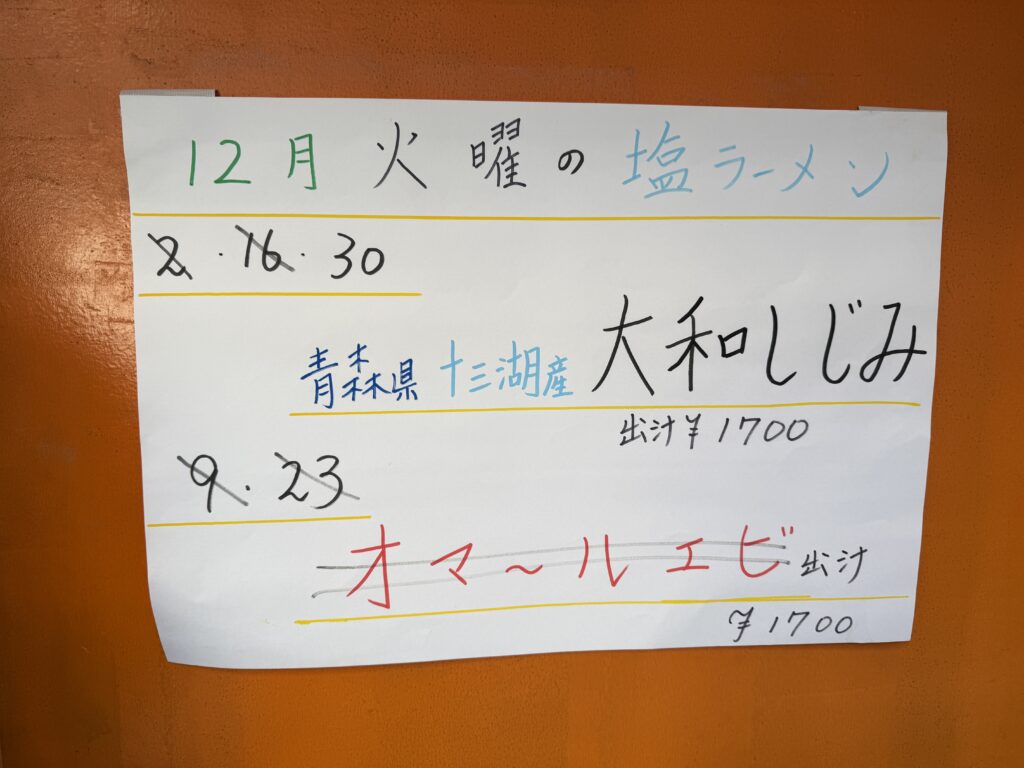 12月 火曜の塩ラーメン
2・16・30
青森県 十三湖産 大和しじみ
出汁¥1700
9・23
オマ〜ルエビ出汁
¥1700